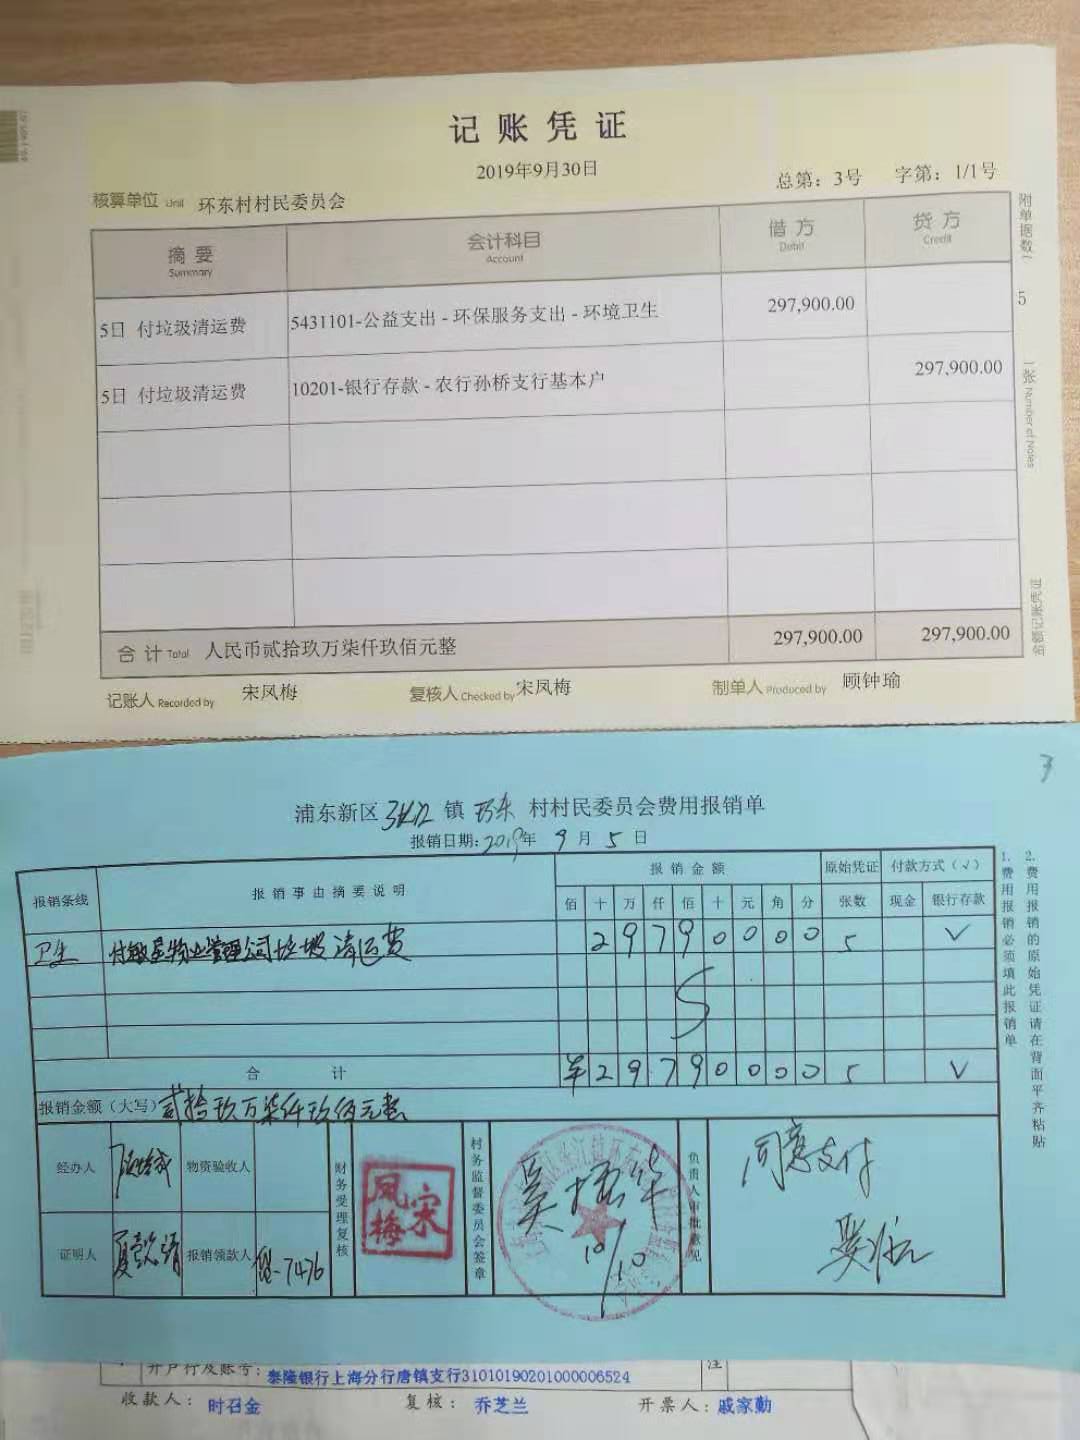 记账凭证
2019年9月30日
总第：3号 字第：1/1号
核算单位 Unit 环东村村民委员会
附单据数 5 张 Number of Notes
摘要 会计科目 借方 贷方
Summary Account Debit Credit
5日 付垃圾清运费 5431101-公益支出 - 环保服务支出 - 环境卫生 297,900.00
5日 付垃圾清运费 10201-银行存款 - 农行孙桥支行基本户 297,900.00
合计 Total 人民币贰拾玖万柒仟玖佰元整 297,900.00 297,900.00
金额记账凭证
记账人 Recorded by 宋凤梅 复核人 Checked by 宋凤梅 制单人 Produced by 顾钟瑜
3
浦东新区 张江 镇 环东 村村民委员会费用报销单
报销日期: 2019年 9 月 5 日
报销条线 报销事由摘要说明 报销金额 原始凭证 付款方式（√）
佰 十 万 仟 佰 十 元 角 分 张数 现金 银行存款
卫生 付敏星物业管理公司垃圾清运费 2 9 7 9 0 0 0 0 5 √
合计 ¥ 2 9 7 9 0 0 0 0 5 √
报销金额（大写） 贰拾玖万柒仟玖佰元整
经办人 物资验收人
证明人 报销领款人 -7476
财务受理复核
宋凤梅
村务监督委员会签章
10/10
负责人审批意见
同意支付
1. 费用报销必须填此报销单
2. 费用报销的原始凭证请在背面平齐粘贴
开户行及账号: 泰隆银行上海分行唐镇支行31010190201000006524
注
收款人: 时召金 复核: 乔芝兰 开票人: 戚家勤